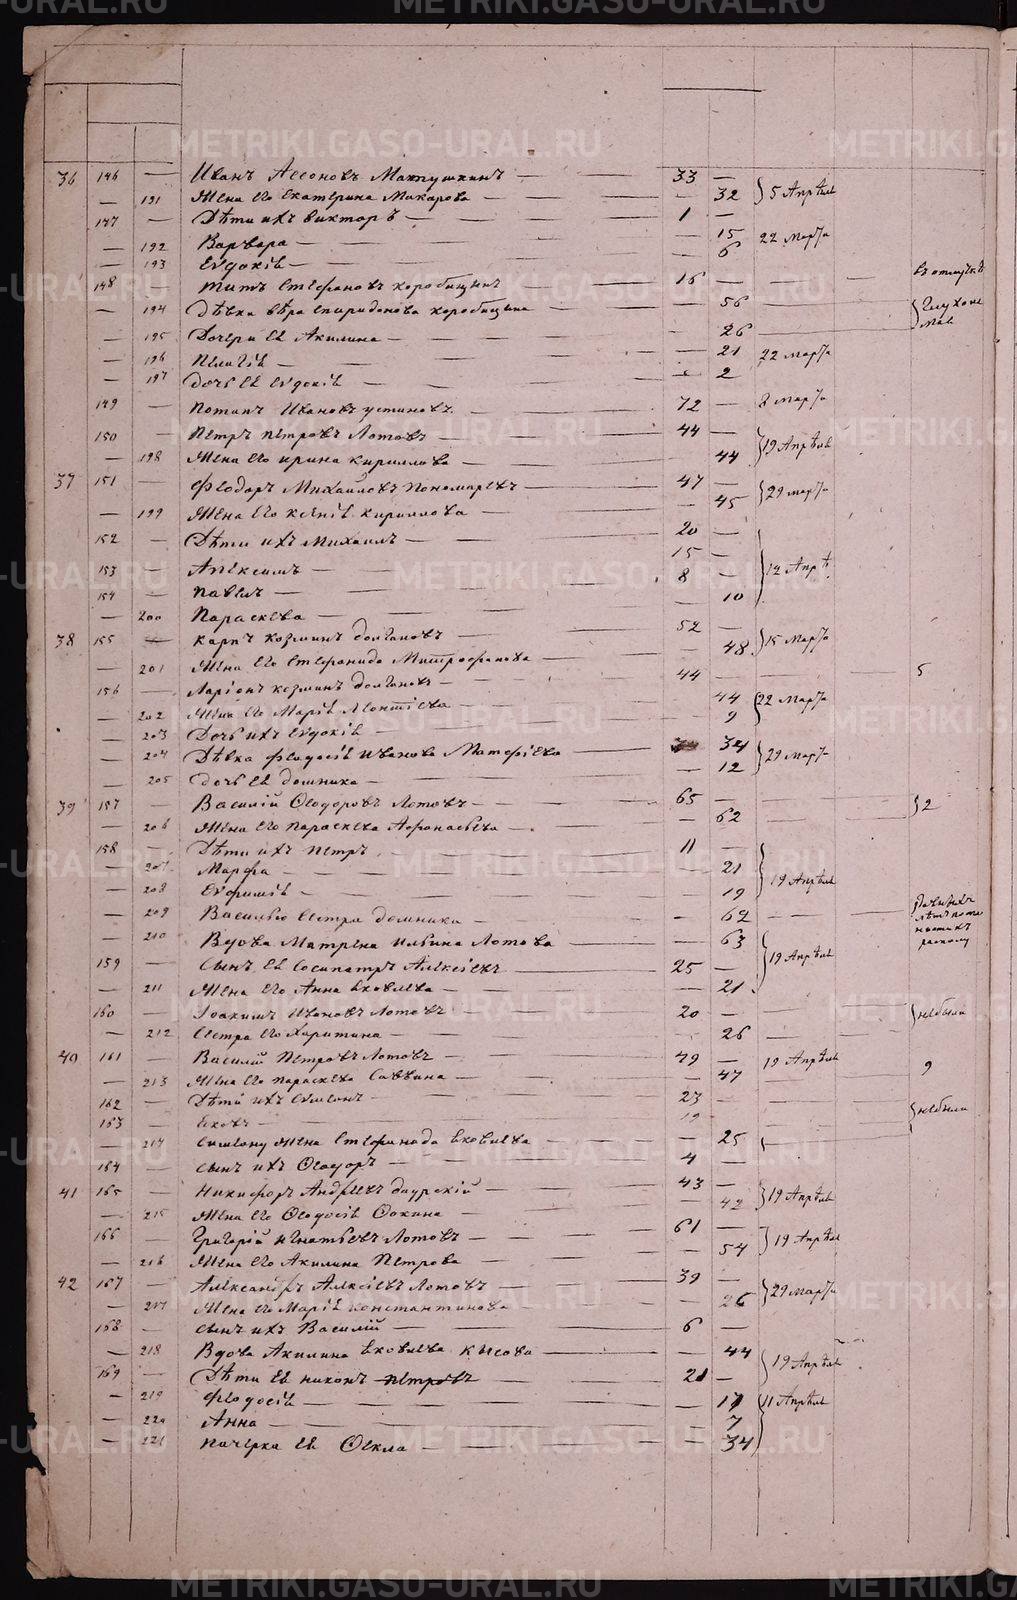 METRIKI.GASO-URAL.RU
36 146 — Иванъ Лесоновъ Матушкинъ — 33 —
— 191 Жена его Екатерина Макарова — — 32 } 5 Апрѣля
147 — Дѣти ихъ Викторъ — 1 —
— 192 Варвара — — 15 22 Марта
— 193 Евдокія — — 6
148 — Титъ Стефановъ Коробицынъ 16 — въ отлучкѣ
— 194 Дѣвка Вѣра Спиридонова Коробицына — — 56 } глухоне мая
— 195 Дочери ея Акилина — — 26
— 196 Пелагія — — 21 22 Марта
— 197 Дочь ея Евдокія — — 2
149 — Потапъ Ивановъ Устиновъ — 72 — 2 Марта
150 — Петръ Петровъ Лотовъ — 44 —
— 198 Жена его Ирина Кириллова — — 44 } 19 Апрѣля
37 151 — Феодоръ Михайловъ Пономаревъ — 47 —
— 199 Жена его Ксенія Кириллова — — 45 } 29 Марта
152 — Дѣти ихъ Михаилъ — 20 —
153 — Алексѣй — 15 —
154 — Павелъ — 8 — } 12 Апрѣ
— 200 Параскева — — 10
38 155 — Карпъ Козминъ Долгановъ — 52 —
— 201 Жена его Стефанида Митрофанова — — 48 } 15 Марта
156 — Ларіонъ Козминъ Долгановъ — 44 — 5
— 202 Жена его Марія Леонтіева — — 44 } 22 Марта
— 203 Дочь ихъ Евдокія — — 9
— 204 Дѣвка Феодосія Иванова Матфіева — 34
— 205 Дочь ея Домника — — 12 } 29 Марта
39 157 — Василій Феодоровъ Лотовъ — 65 — } 2
— 206 Жена его Параскева Афонасьева — — 62
158 — Дѣти ихъ Петръ 11 —
— 207 Марфа — — 21
— 208 Евфимія — — 19 } 19 Апрѣля
— 209 Василью сестра Домника — — 69
— 210 Вдова Матрена Ильина Лотова — — 63
159 — Сынъ ея Сосипатръ Алексіевъ — 25 — } 19 Апрѣля
— 211 Жена его Анна Яковлева — — 21
160 — Іоакимъ Ивановъ Лотовъ — 20 — } небыли
— 212 Сестра его Харитина — — 26
40 161 — Василій Петровъ Лотовъ — 49 — 19 Апрѣля
— 213 Жена его Параскева Саввина — — 47 9
162 — Дѣти ихъ Симеонъ — 23 } небыли
163 — Яковъ — 19
— 214 Симеону жена Стефанида Яковлева — — 25
164 — Сынъ ихъ Феодоръ — 4 —
41 165 — Никифоръ Андреевъ Даурскій — 43 —
— 215 Жена его Феодосія Фокина — — 42 } 19 Апрѣля
166 — Григорій Игнатьевъ Лотовъ — 61 —
— 216 Жена его Акилина Петрова — — 54 } 19 Апрѣля
42 167 — Александръ Алексіевъ Лотовъ — 39 —
— 217 Жена его Марія Константинова — 26 } 29 Марта
168 — Сынъ ихъ Василій — 6 —
— 218 Вдова Акилина Яковлева — — 44
169 — Дѣти ея Никонъ Петровъ 21 — } 19 Апрѣля
— 219 Феодосія — — 17 11 Апрѣля
— 220 Анна — — 7
— 221 Фекла — — 34